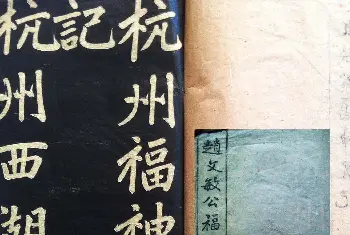 趙文敏公福
杭州福神
記
杭州西湖